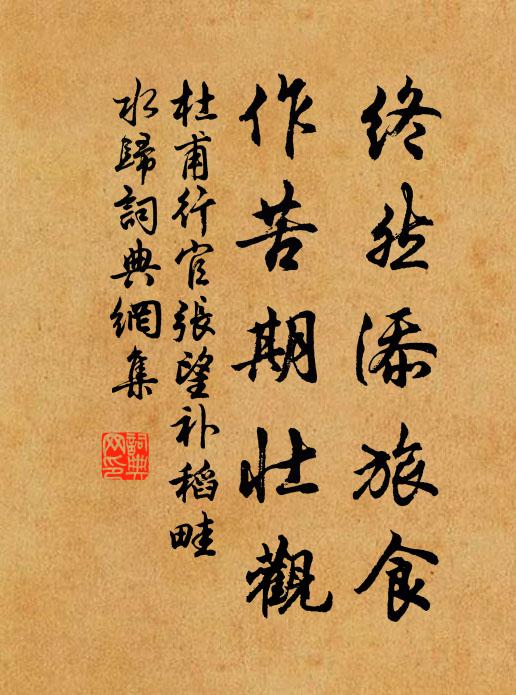 终然添旅食
作苦期壮觀
杜甫行官張望补稻畦
水歸詞典網集
詞典
网印